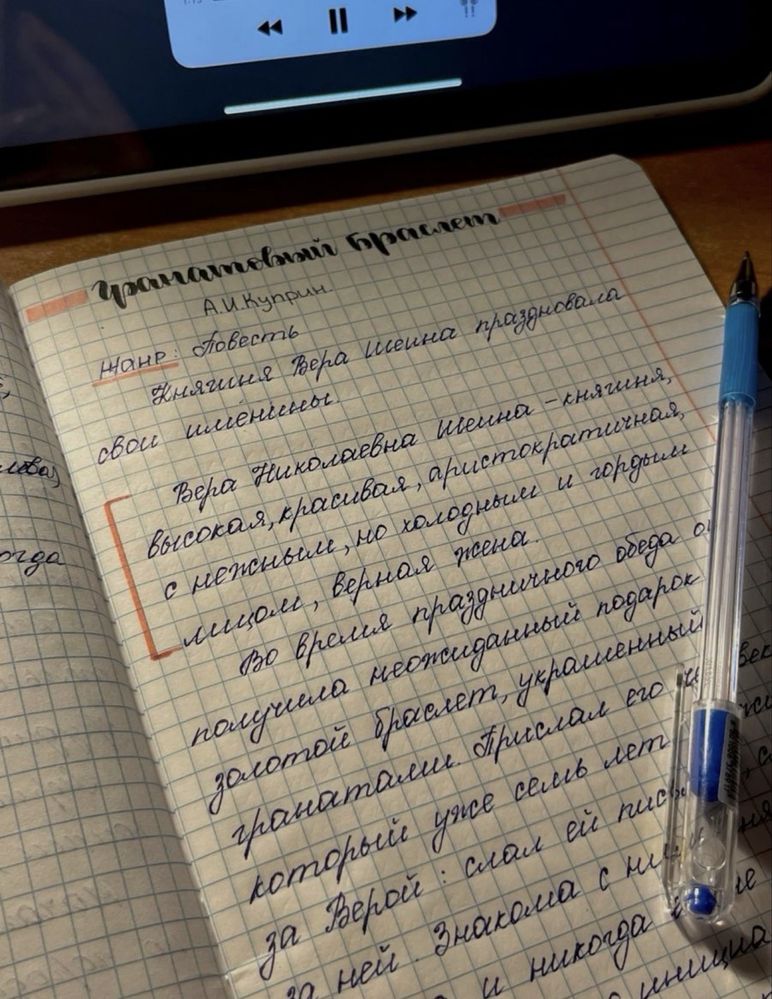 Гранатовый браслет
А.И.Куприн
Жанр: Повесть
Княгиня Вера Шеина праздновала
свои именины.
Вера Николаевна Шеина - княгиня,
высокая, красивая, аристократичная,
с нежным, но холодным и гордым
лицом, верная жена.
Во время праздничного обеда
получила неожиданный подарок
золотой браслет, украшенный
гранатами. Прислал его
который уже семь лет
за Верой: слал ей
за ней. Знакома с
и никогда не